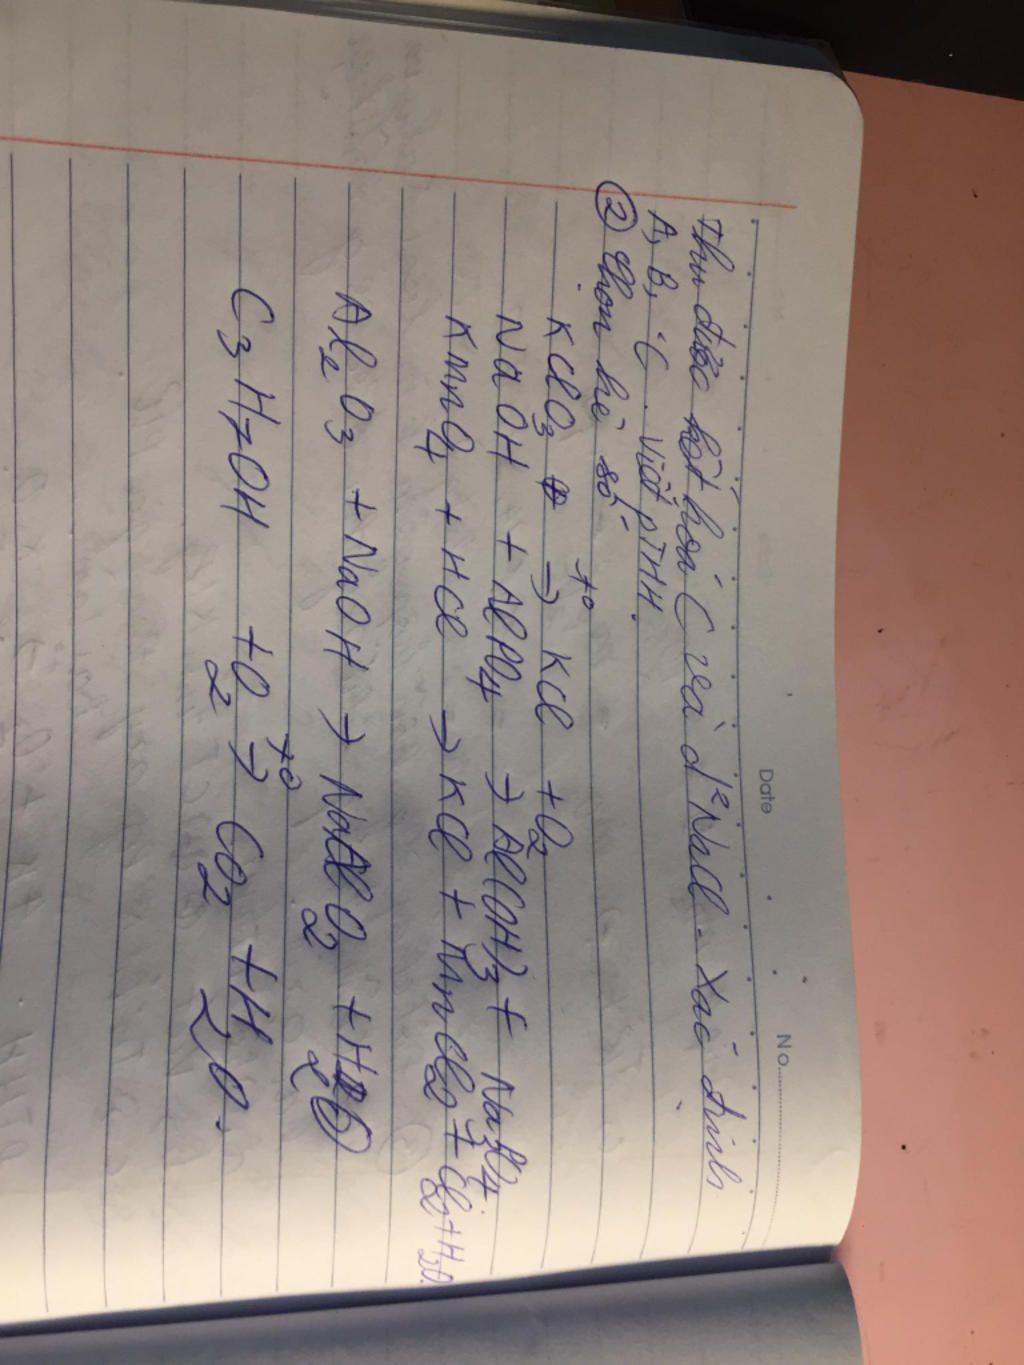 Date No
Thu được kết hoá C và d²NaCl. Xác định
A, B, C. Viết PTHH.
② Chọn hệ số
KClO3 → t° KCl + O2
NaOH + AlPO4 → Al(OH)3 + Na3PO4.
KMnO4 + HCl → KCl + MnCl2 + Cl2 + H2O.
Al2O3 + NaOH → NaAlO2 + H2O
C3H7OH + O2 → t° CO2 + H2O.